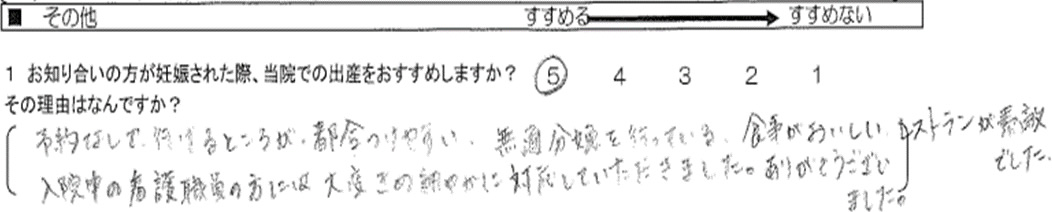 ■ その他 すすめる → すすめない
1 お知り合いの方が妊娠された際、当院での出産をおすすめしますか? ⑤ 4 3 2 1
その理由はなんですか?
予約なしで行けるところが、都合つけやすい、無痛分娩を行っている、食事がおいしい、レストランが素敵でした。
入院中の看護職員の方には大変きめ細やかに対応していただきました。ありがとうございました。